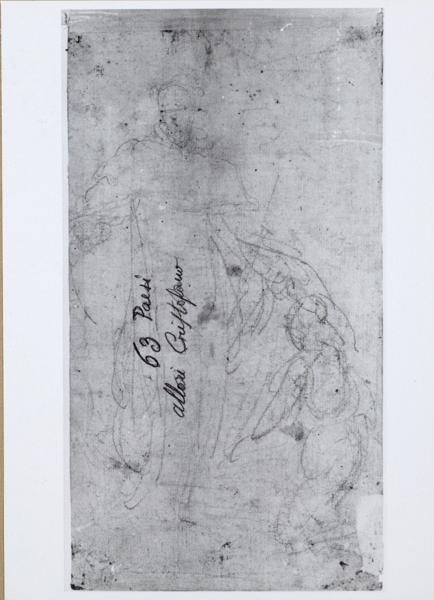 63 Paesi
Allori Cristofano